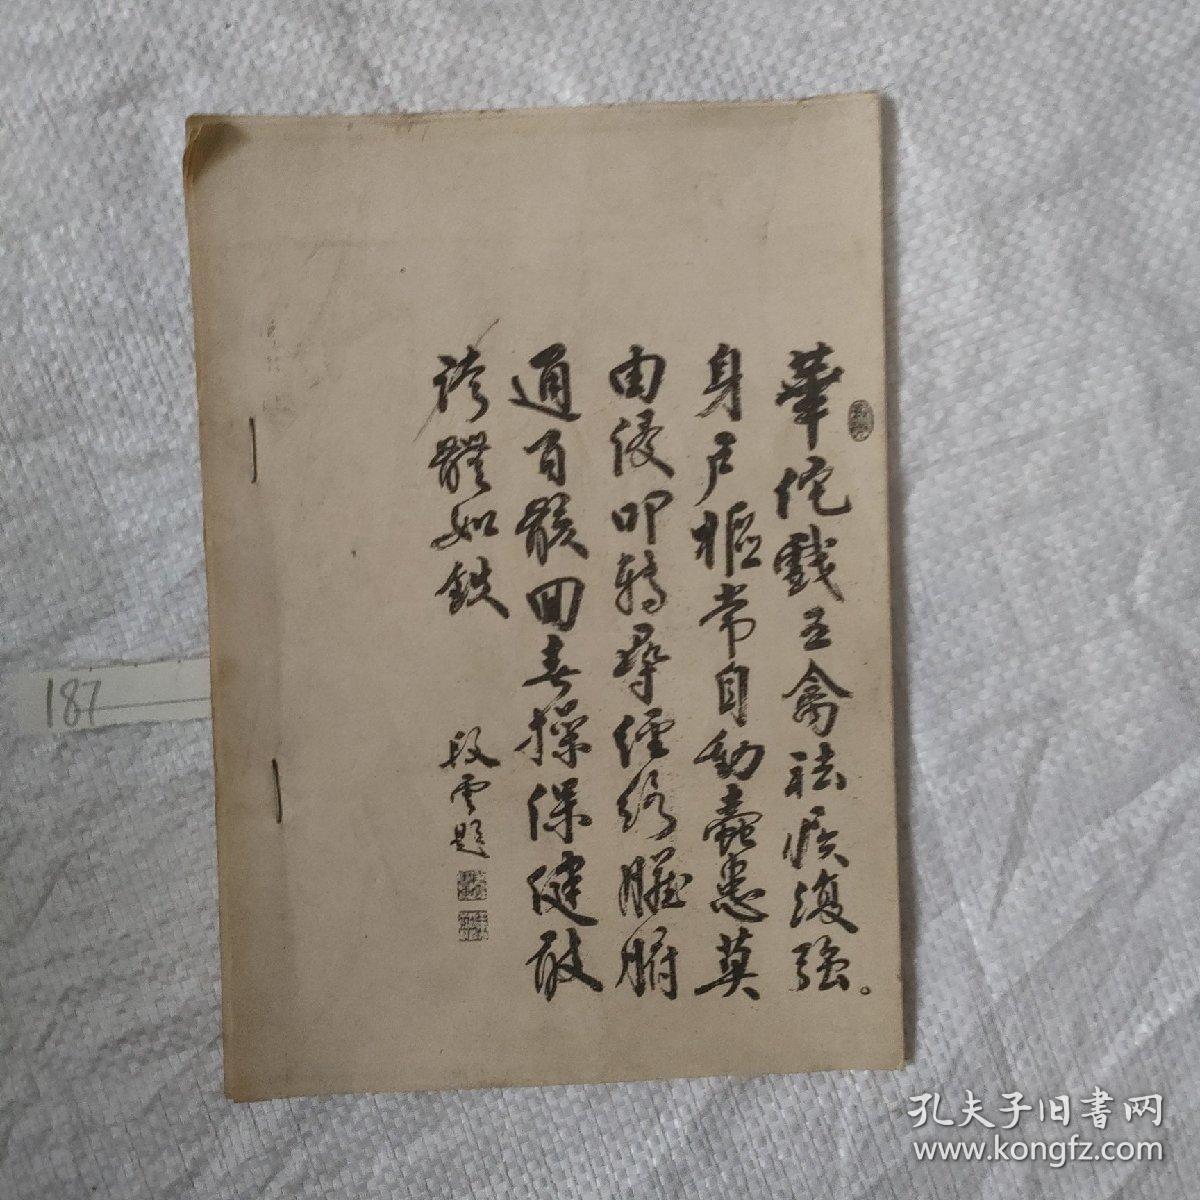 華佗戲五禽祛疾復強。
身戶樞常自動蠹患莫
由侵叩轉尋經絡臟腑
通百骸回春操保健敢
誇體如鐵
段雲題
187
孔夫子旧書网
www.kongfz.com